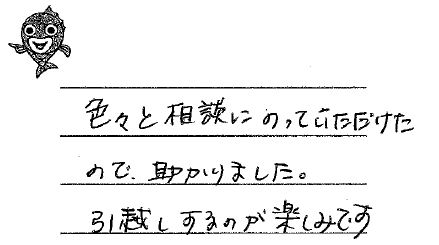 色々と相談にのっていただけた
ので、助かりました。
引越しするのが楽しみです